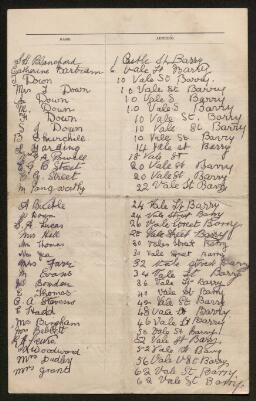 NAME. ADDRESS.
J H Blanchford 1 Castle St Barry
Catherine Bartram 6 Vale St Barry
Down 10 Vale St Barry.
Mrs J Down 10 Vale St Barry
L Down 10 Vale S Barry
M Down 10 Vale S Barry
F Down 10 Vale St. Barry
S J Down 10 Vale St Barry
B Churchill 10 Vale St Barry
L Harding 14 Vale st Barry
A Powell 18 Vale St
E G Street 20 Vale St Barry
V G. Street 20 Vale St. Barry
M Langworthy 22 Vale St Barry
A Beetle 24 Vale St Barry
24 Vale Street Barry
S. A. Lucas 26 Vale Street Barry
28 Vale Street Barry
Mr Thomas 30 Vale Street Barry
30 Vale Street Barry
Mrs Farr 32 Vale Street Barry
M Evans 34 Vale St Barry
Bowden 36 Vale St Barry
E Thomas 40 Vale St Barry
C A Stevens 42 Vale St Barry
E Hadd 48 Vale St Barry
Mrs Bingham 46 Vale St Barry
Mrs Bobbett 50 Vale St Barry
52 Vale St. Barry
Woodward 52 Vale St Barry
Mrs Dudley 56 Vale St Barry
Mrs Grant 62 Vale St Barry
62 Vale St Barry.